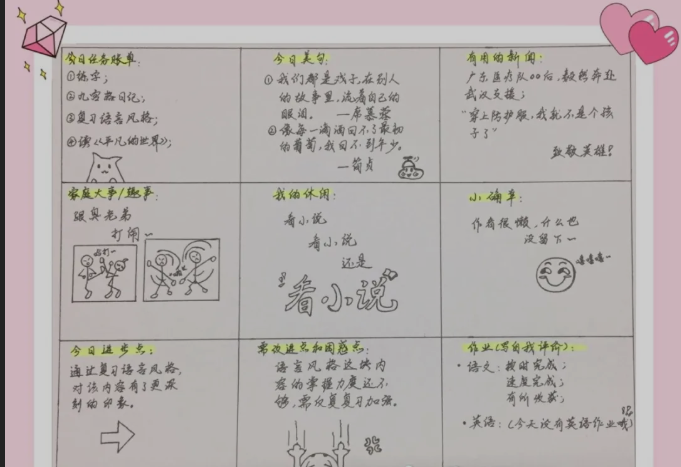 今日任务账单:
①练字;
②九宫格日记;
③复习语言风格;
④读《平凡的世界》;
今日美句:
①我们都是戏子,在别人
的故事里,流着自己的
眼泪。 —席慕蓉
②像每一滴酒回不了最初
的葡萄,我回不到年少。
—简贞
有用的新闻:
广东医疗队00后,毅然奔赴
武汉支援;
"穿上防护服,我就不是个孩
子了"
致敬英雄!
家庭大事/趣事:
跟臭老弟
打闹~
我的休闲:
看小说
看小说
还是
看小说
小确幸:
作者很懒,什么也
没留下~
嘻嘻嘻~
今日进步点:
通过复习语言风格,
对该内容有了更深
刻的印象。
需改进点和困惑点:
语言风格这块内
容的掌握力度还不
够,需反复复习加强。
作业(写自我评价):
·语文:按时完成;
速度完成;
有所收获;
·英语:(今天没有英语作业哦)